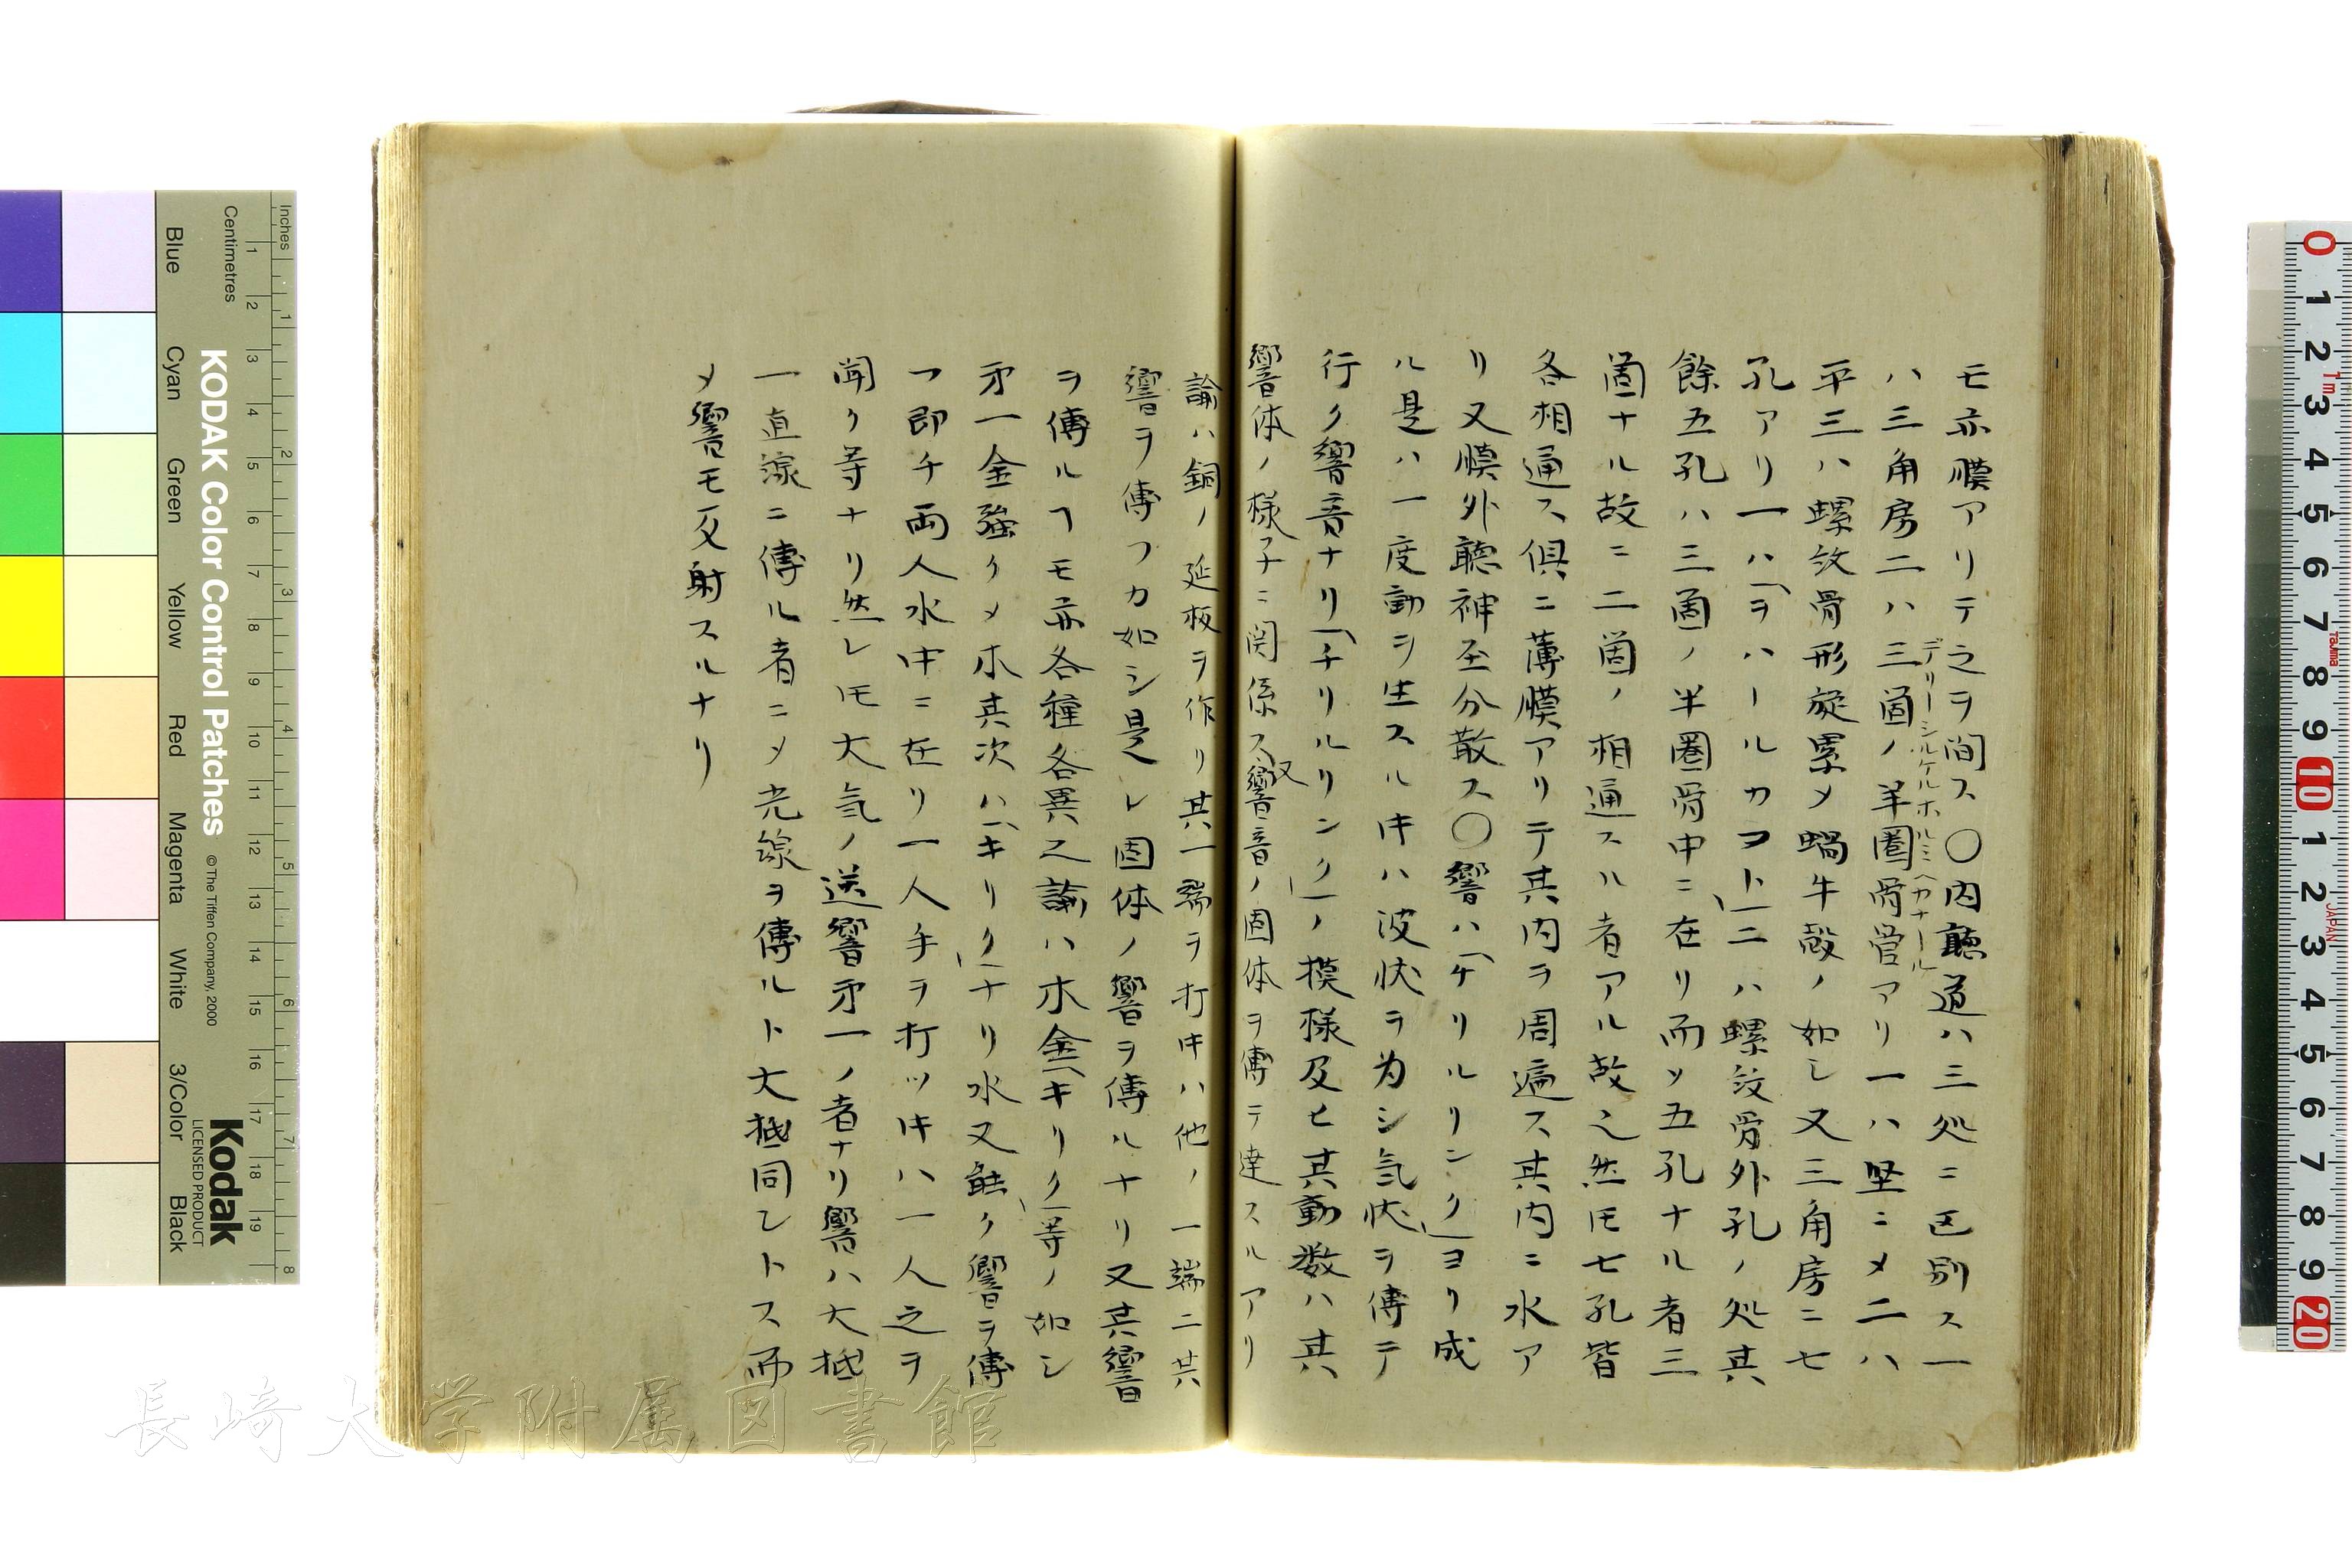 モ亦膜アリテ之ヲ間ス〇内聽道ハ三処ニ区別ス一
デリーシルケルホルミヘカナール
ハ三角房二ハ三箇ノ半圏骨管アリ一ハ竪ニメ二ハ
平三ハ螺紋骨形旋累メ蝸牛殻ノ如し又三角房ニ七
孔アリ一ハ「ヲハールカヲト」二ハ螺紋骨外孔ノ処其
餘五孔ハ三箇ノ半圏骨中ニ在リ而ソ五孔ナル者三
箇ナル故ニ二箇ノ相通スル者アル故之然𪜈七孔皆
各相通ス倶ニ薄膜アリテ其内ヲ周遍ス其内ニ水ア
リ又膜外聽神至分散ス〇響ハ「チリルリンク」ヨリ成
ル是ハ一度動ヲ生スル𪜃ハ波状ヲ为シ気状ヲ傳テ
行ク響音ナリ「チリルリンク」ノ模様及ヒ其動数ハ其
響体ノ様子ニ関係ス又響音ノ固体ヲ傳テ達スルアリ
諭ハ銅ノ延板ヲ作リ其一端ヲ打𪜃ハ他ノ一端ニ其
響ヲ傳フカ如シ是レ固体ノ響ヲ傳ルナリ又其響
ヲ傳ルヿモ亦各種各異之諭ハ木金「キリク」等ノ如シ
第一金強クメ木其次ハ「キリク」ナリ水又能ク響ヲ傳
フ即チ両人水中ニ在リ一人手ヲ打ツ𪜃ハ一人之ヲ
聞ク等ナリ然レ𪜈大気ノ送響第一ノ者ナリ響ハ大抵
一直線ニ傳ル者ニメ光線ヲ傳ルト大抵同シトス而
メ響モ反射スルナリ
Inches
Centimetres
KODAK Color Control Patches
© The Tiffen Company, 2000
Kodak
LICENSED PRODUCT
Blue
Cyan
Green
Yellow
Red
Magenta
White
3/Color
Black
長崎大学附属図書館